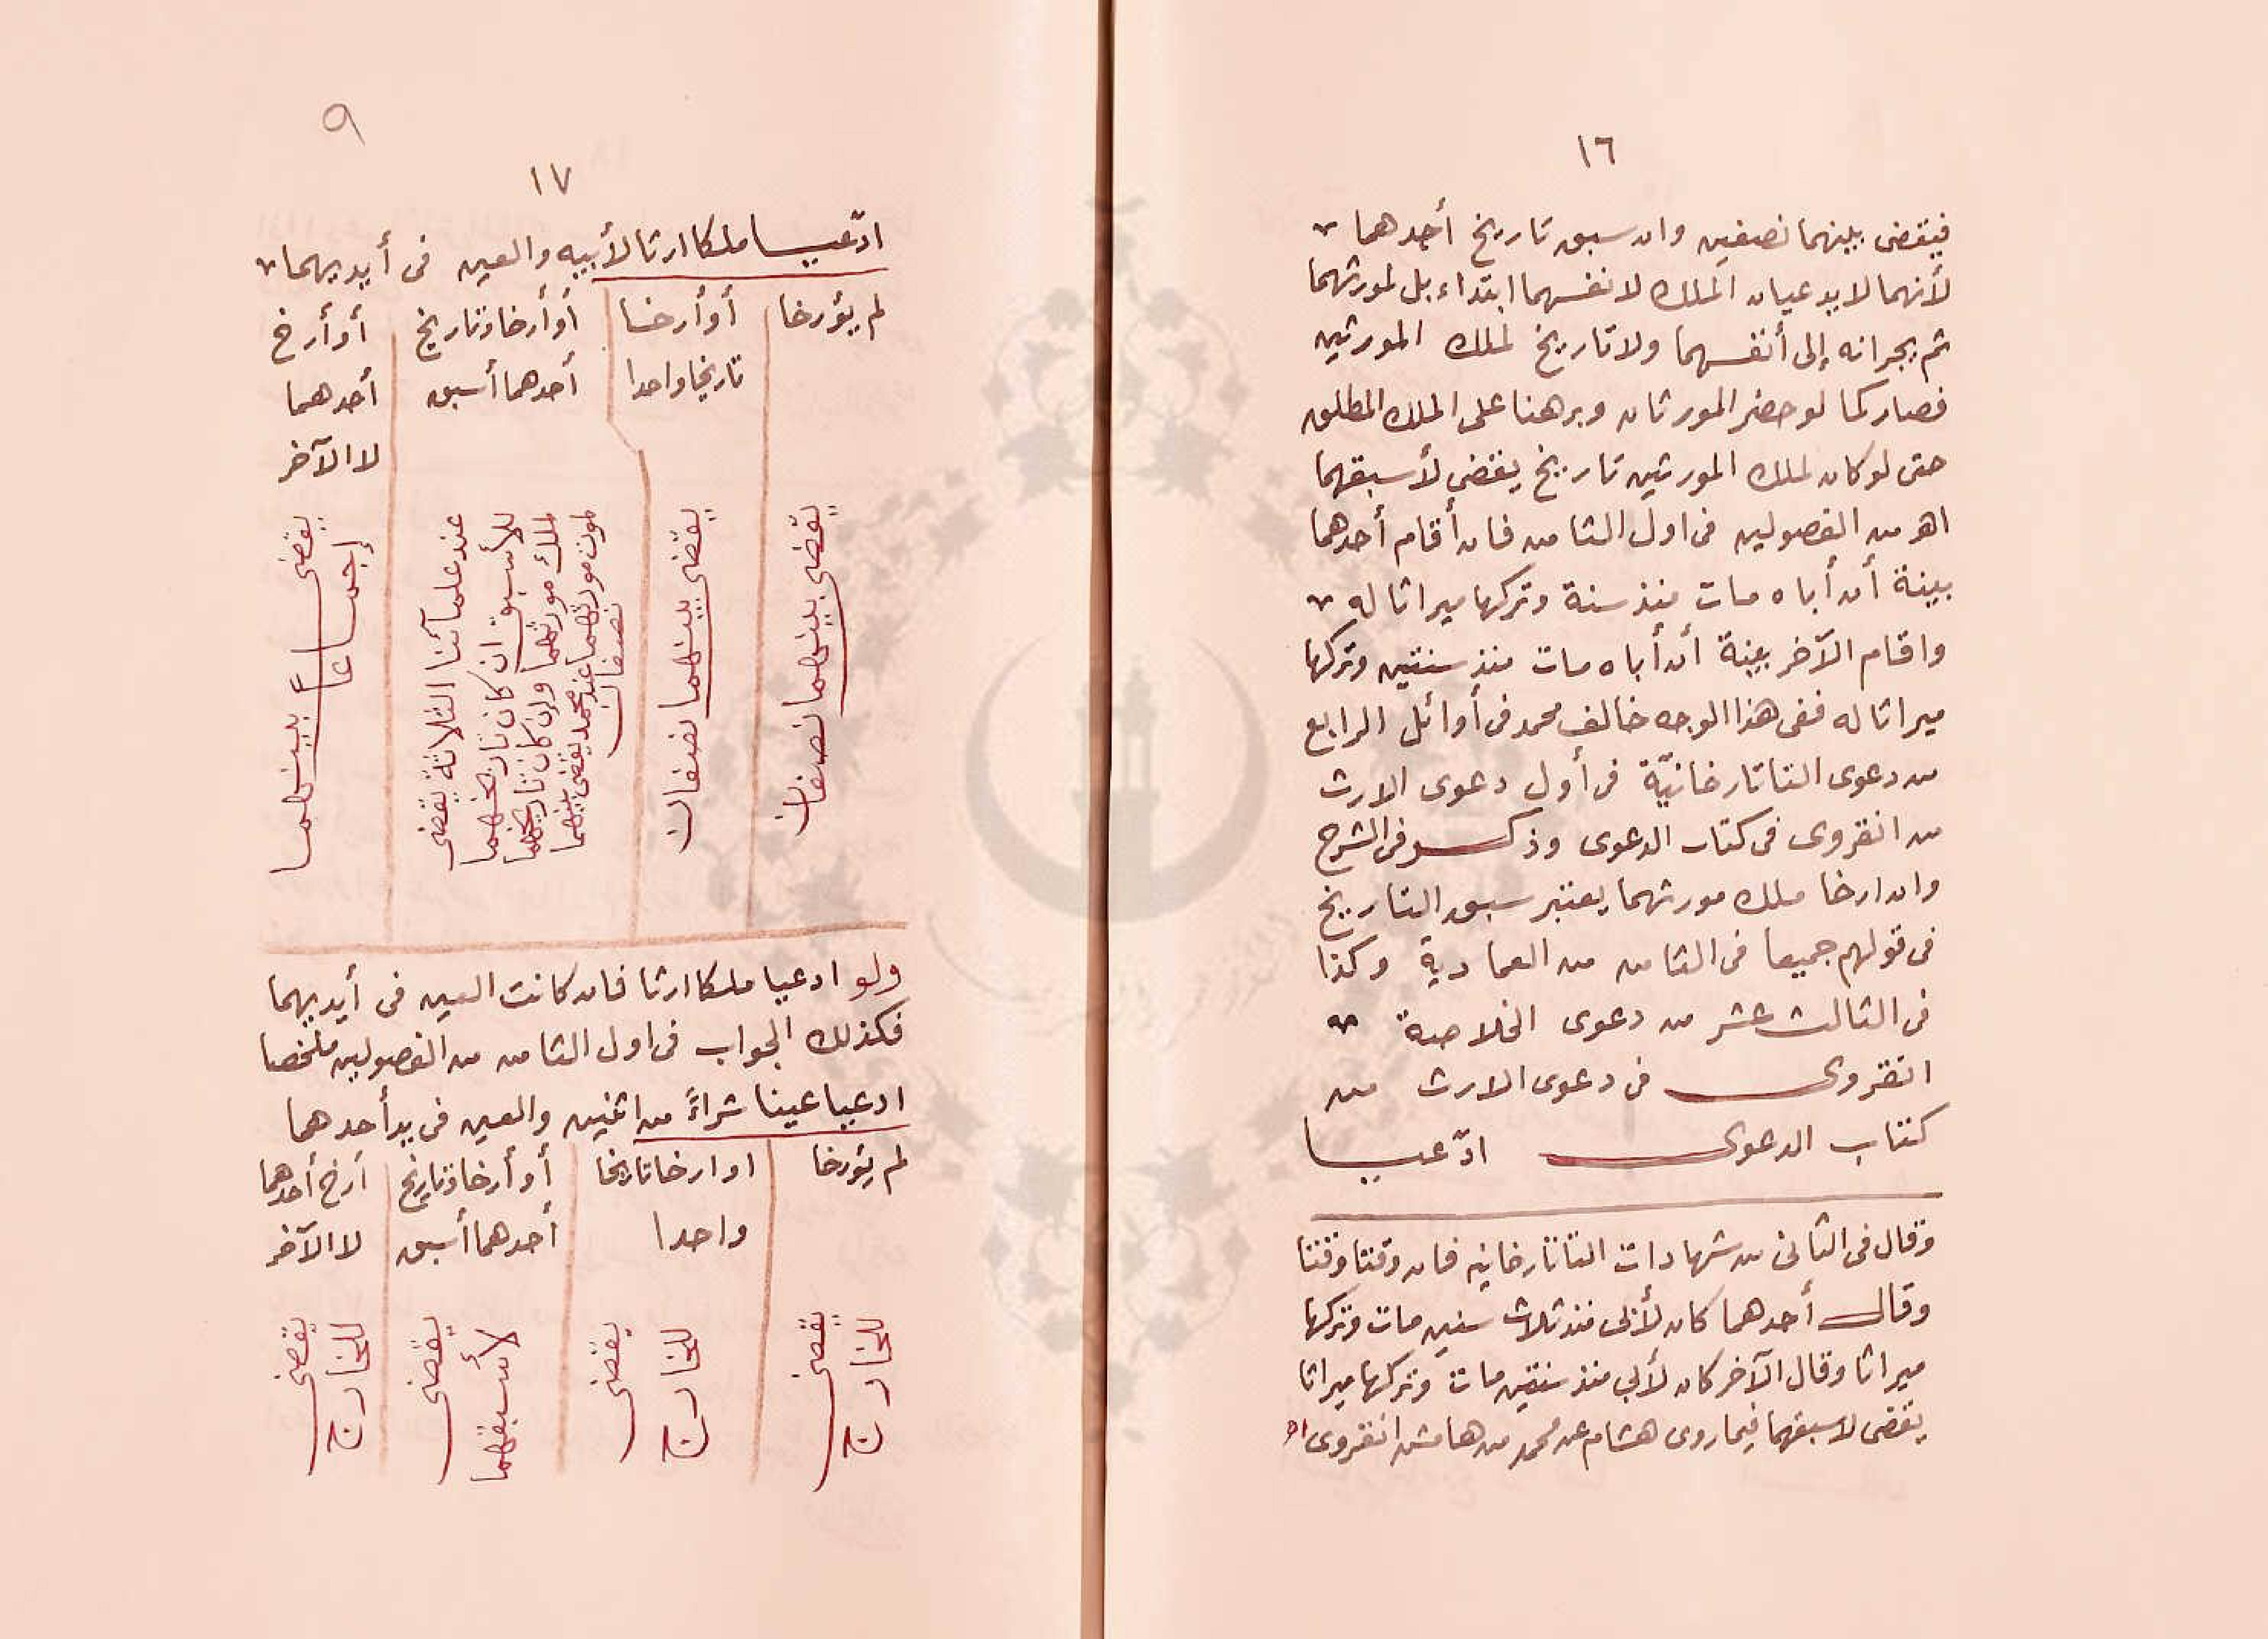 ١٦
فيقضى بينهما نصفين وان سبق تاريخ أحدهما
لأنهما لا يدعيان الملك لانفسهما ابتداء بل لمورثهما
ثم يجرانه إلى أنفسهما ولا تاريخ لملك المورثين
فصار كما لو حضر المورثان وبرهنا على الملك المطلق
حتى لو كان لملك المورثين تاريخ يقضى لأسبقهما
اهـ من الفصولين فى اول الثامن فان أقام أحدهما
بينة أن أباه مات منذ سنة وتركها ميراثا له
واقام الآخر بينة أن أباه مات منذ سنتين وتركها
ميراثا له ففى هذا الوجه خالف محمد فى أوائل الرابع
من دعوى التاتارخانيّة فى أول دعوى الارث
من انقروى فى كتاب الدعوى وذكر فى الشرح
وان ارخا ملك مورثهما يعتبر سبق التاريخ
فى قولهم جميعا فى الثامن من العمادية وكذا
فى الثالث عشر من دعوى الخلاصة
انقروى فى دعوى الارث من
كتاب الدعوى ادّعيا
وقال فى الثانى من شهادات التاتارخانيه فان وقتا وقتا
وقال أحدهما كان لأبى منذ ثلاث سنين مات وتركها
ميراثا وقال الآخر كان لأبي منذ سنتين مات وتركها ميراثا
يقضى لاسبقهما فيما روى هشام عن محمد من هامش انقروى اهـ
٩
١٧
ادّعيا ملكا ارثا لأبيه والعين فى أيديهما
لم يؤرخا
أو أرخا
تاريخا واحدا
أو أرخا وتاريخ
أحدهما أسبق
أو أرخ
أحدهما
لا الآخر
يقضى بينهما نصفان
يقضى بينهما نصفان
عند علمآئنا الثلاثة يقضى
للأسبق ان كان تاريخهما
لملك مورثهما وان كان تاريخهما
لموت مورثهما عند محمد يقضى بينهما
نصفان
يقضى
إجماعاً بينهما
ولو ادعيا ملكا ارثا فان كانت العين فى أيديهما
فكذلك الجواب فى اول الثامن من الفصولين ملخصا
ادعيا عينا شراءً من اثنين والعين فى يد أحدهما
لم يؤرخا
او ارخا تاريخا
واحدا
أو أرخا وتاريخ
أحدهما أسبق
أرخ أحدهما
لا الآخر
يقضى
للخارج
يقضى
للخارج
يقضى
لأسبقهما
يقضى
للخارج